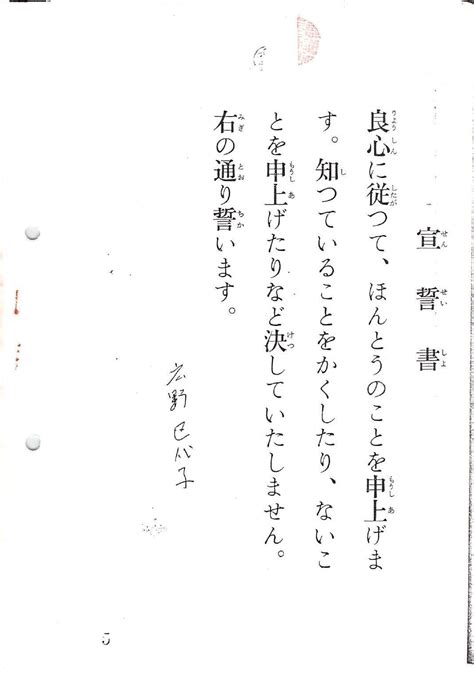 宣誓書
良心に従つて、ほんとうのことを申上げま
す。知つていることをかくしたり、ないこ
とを申上げたりなど決していたしません。
右の通り誓います。
広野巳代子
5